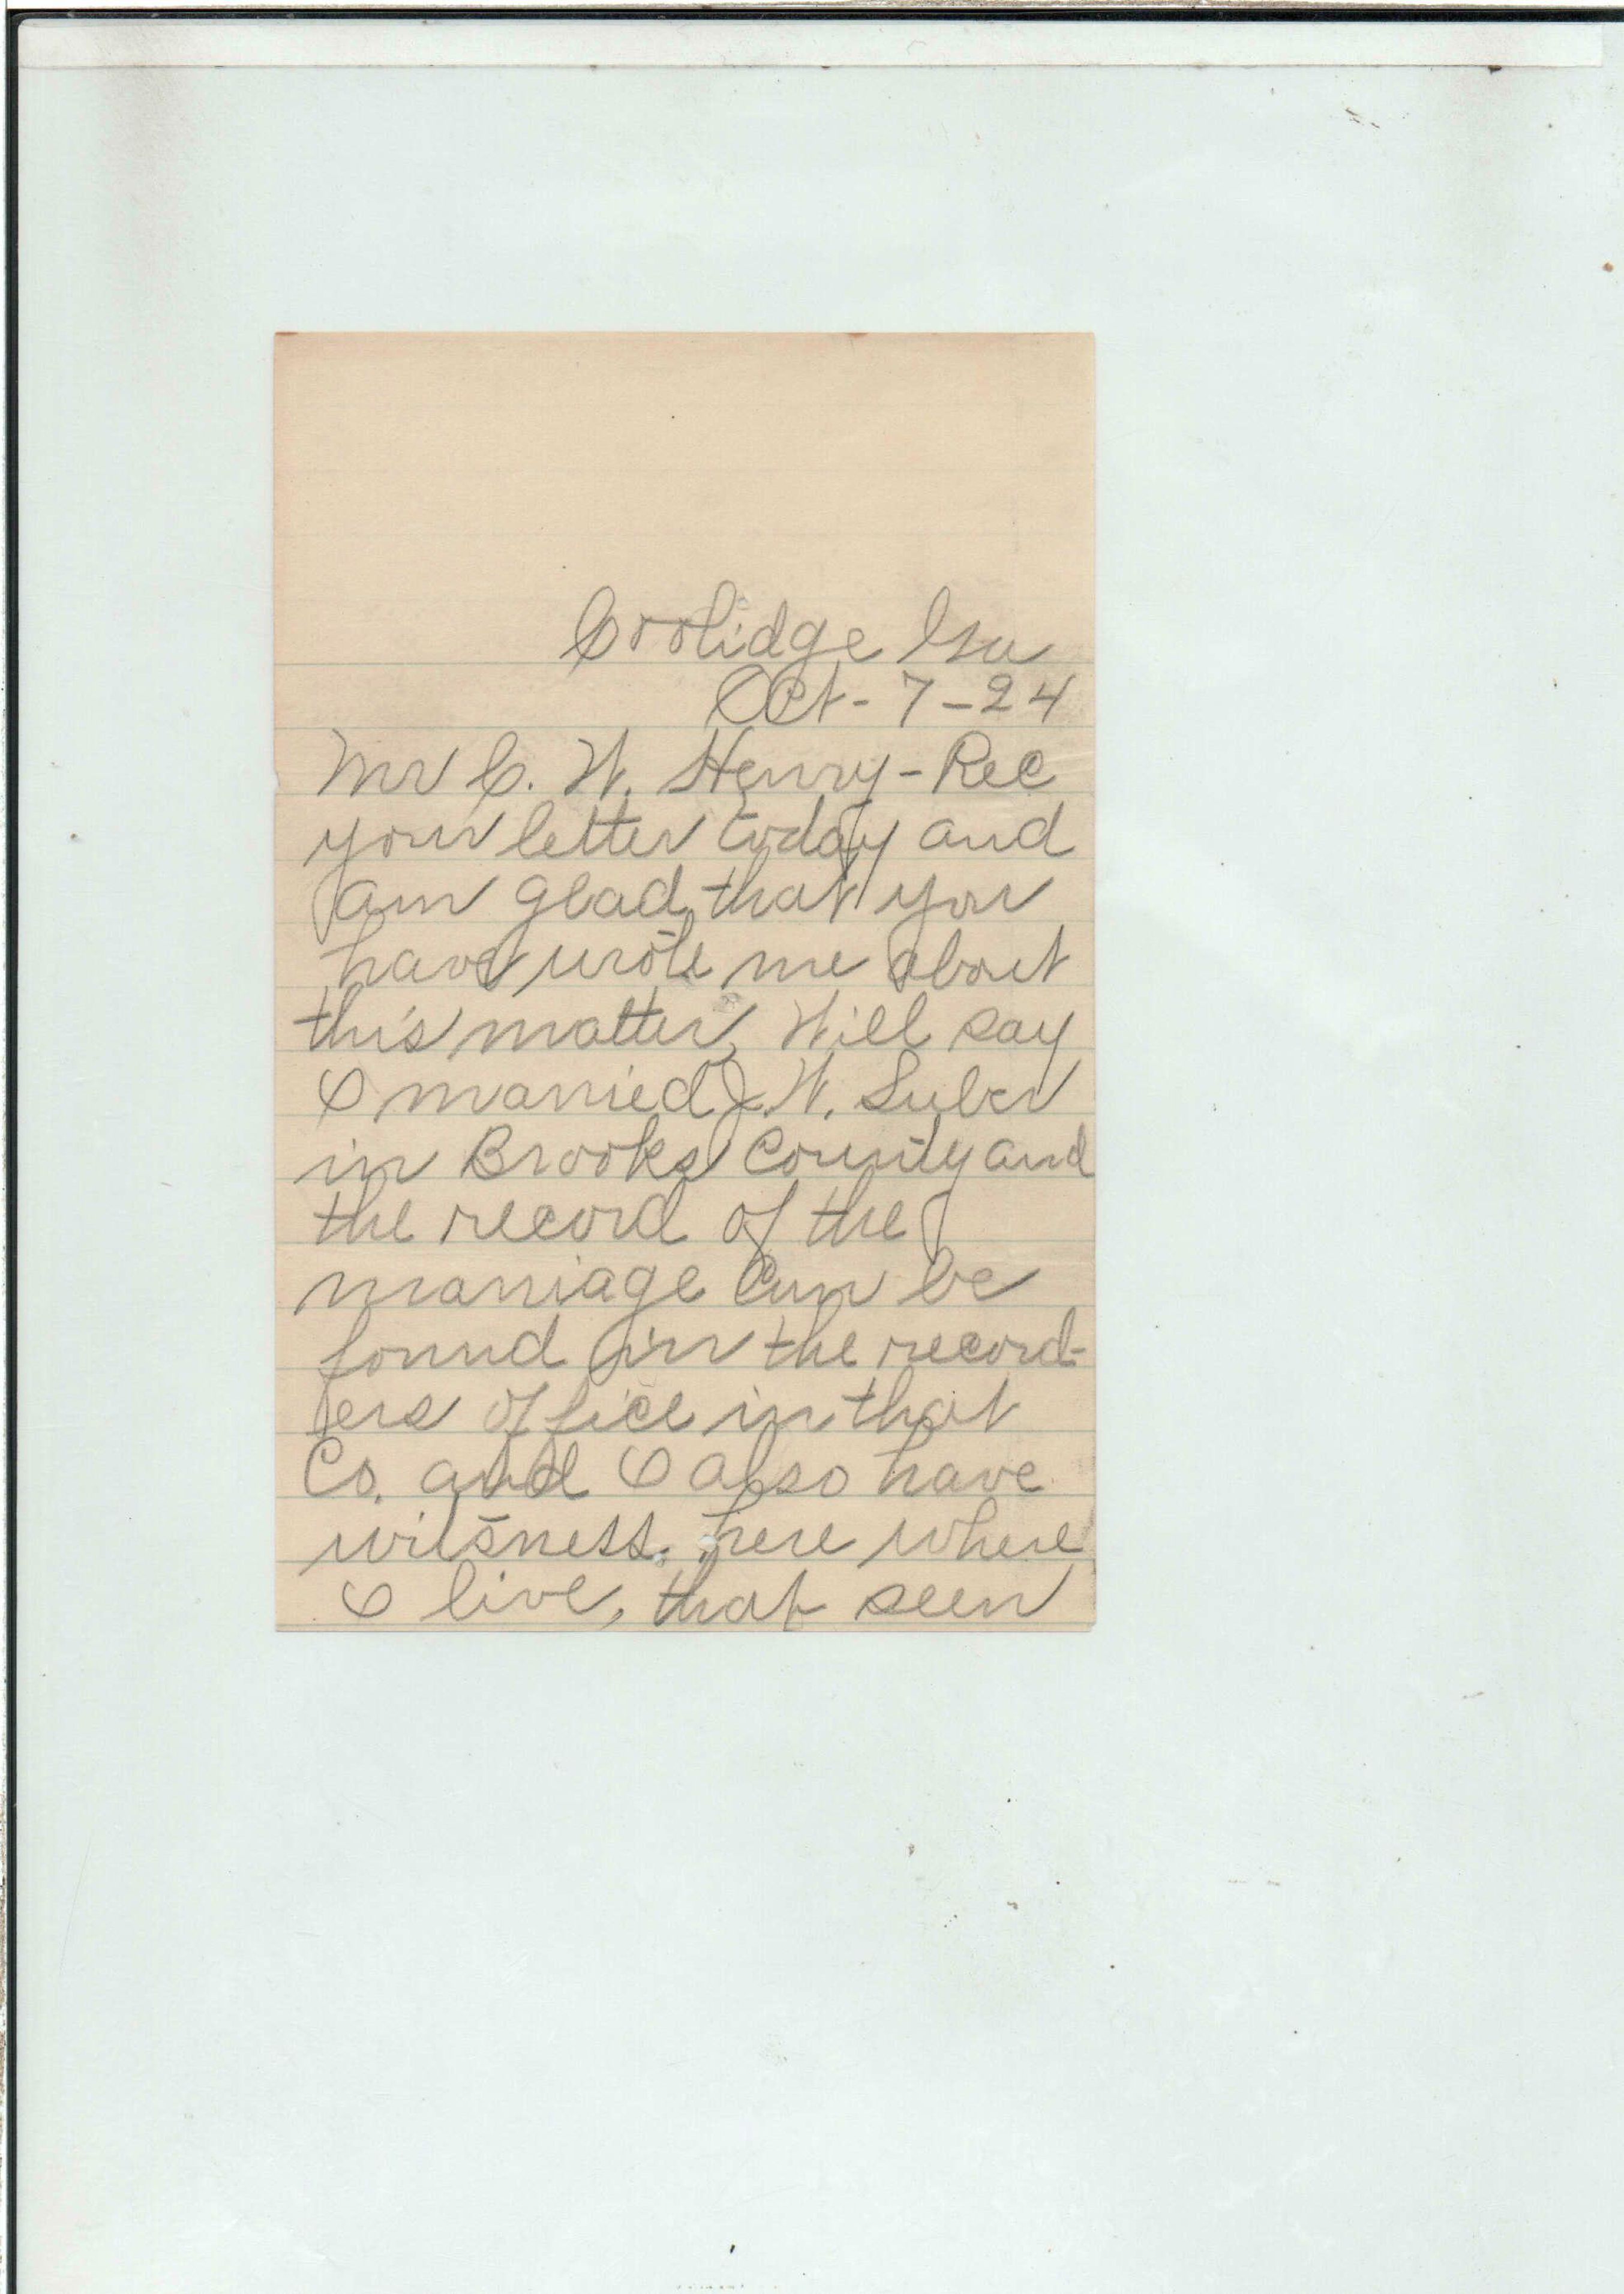 Coolidge Ga
Oct - 7 - 24
Mr C. W. Henry - Rec
your letter today and
am glad that you
have wrote me about
this matter, Will say
I married J. W. Suber
in Brooks County and
the record of the
marriage can be
found in the record-
ers office in that
Co. and I also have
witsness. here where
I live, that seen